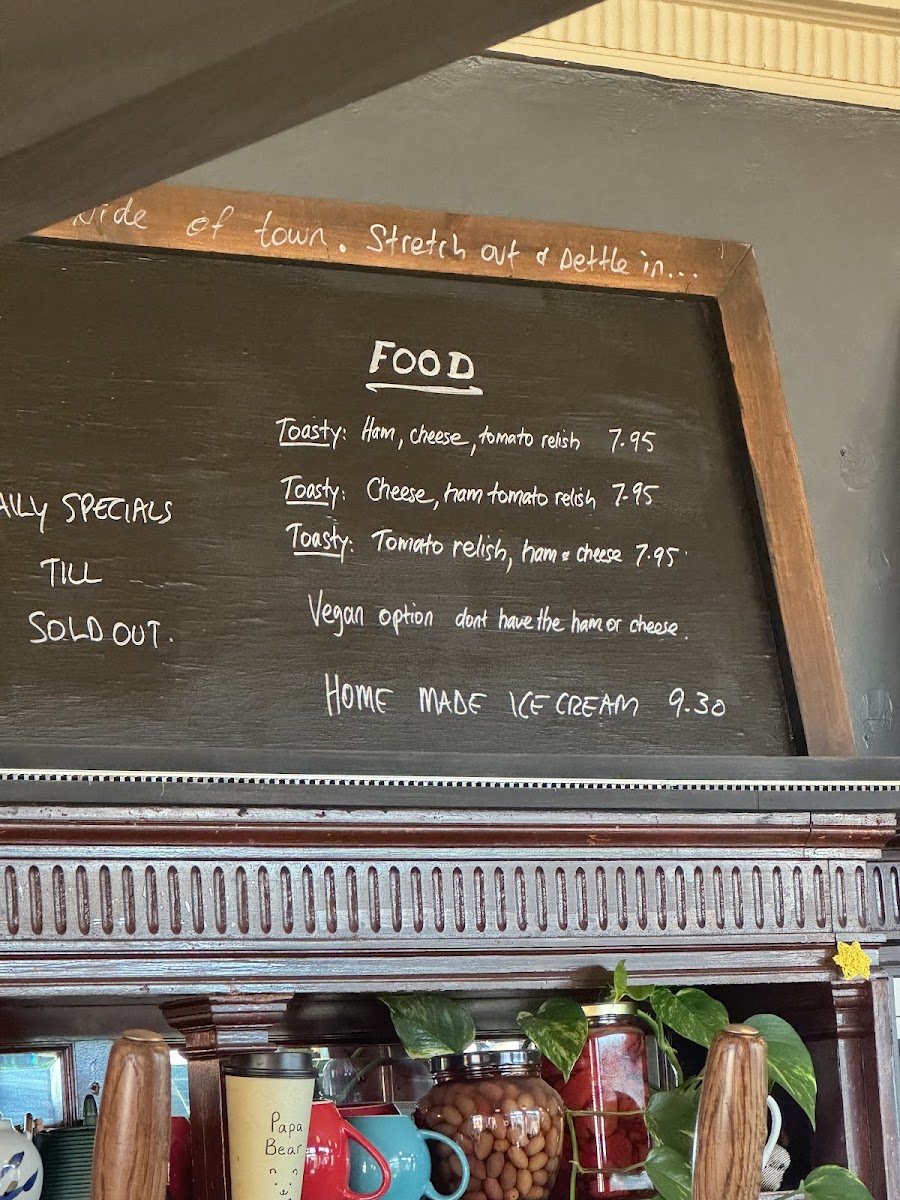 side of town. Stretch out & settle in...
FOOD
Toasty: Ham, cheese, tomato relish 7.95
Toasty: Cheese, ham tomato relish 7.95
Toasty: Tomato relish, ham & cheese 7.95
Vegan option dont have the ham or cheese.
HOME MADE ICE CREAM 9.30
AILY SPECIALS
TILL
SOLD OUT.
Papa
Bear